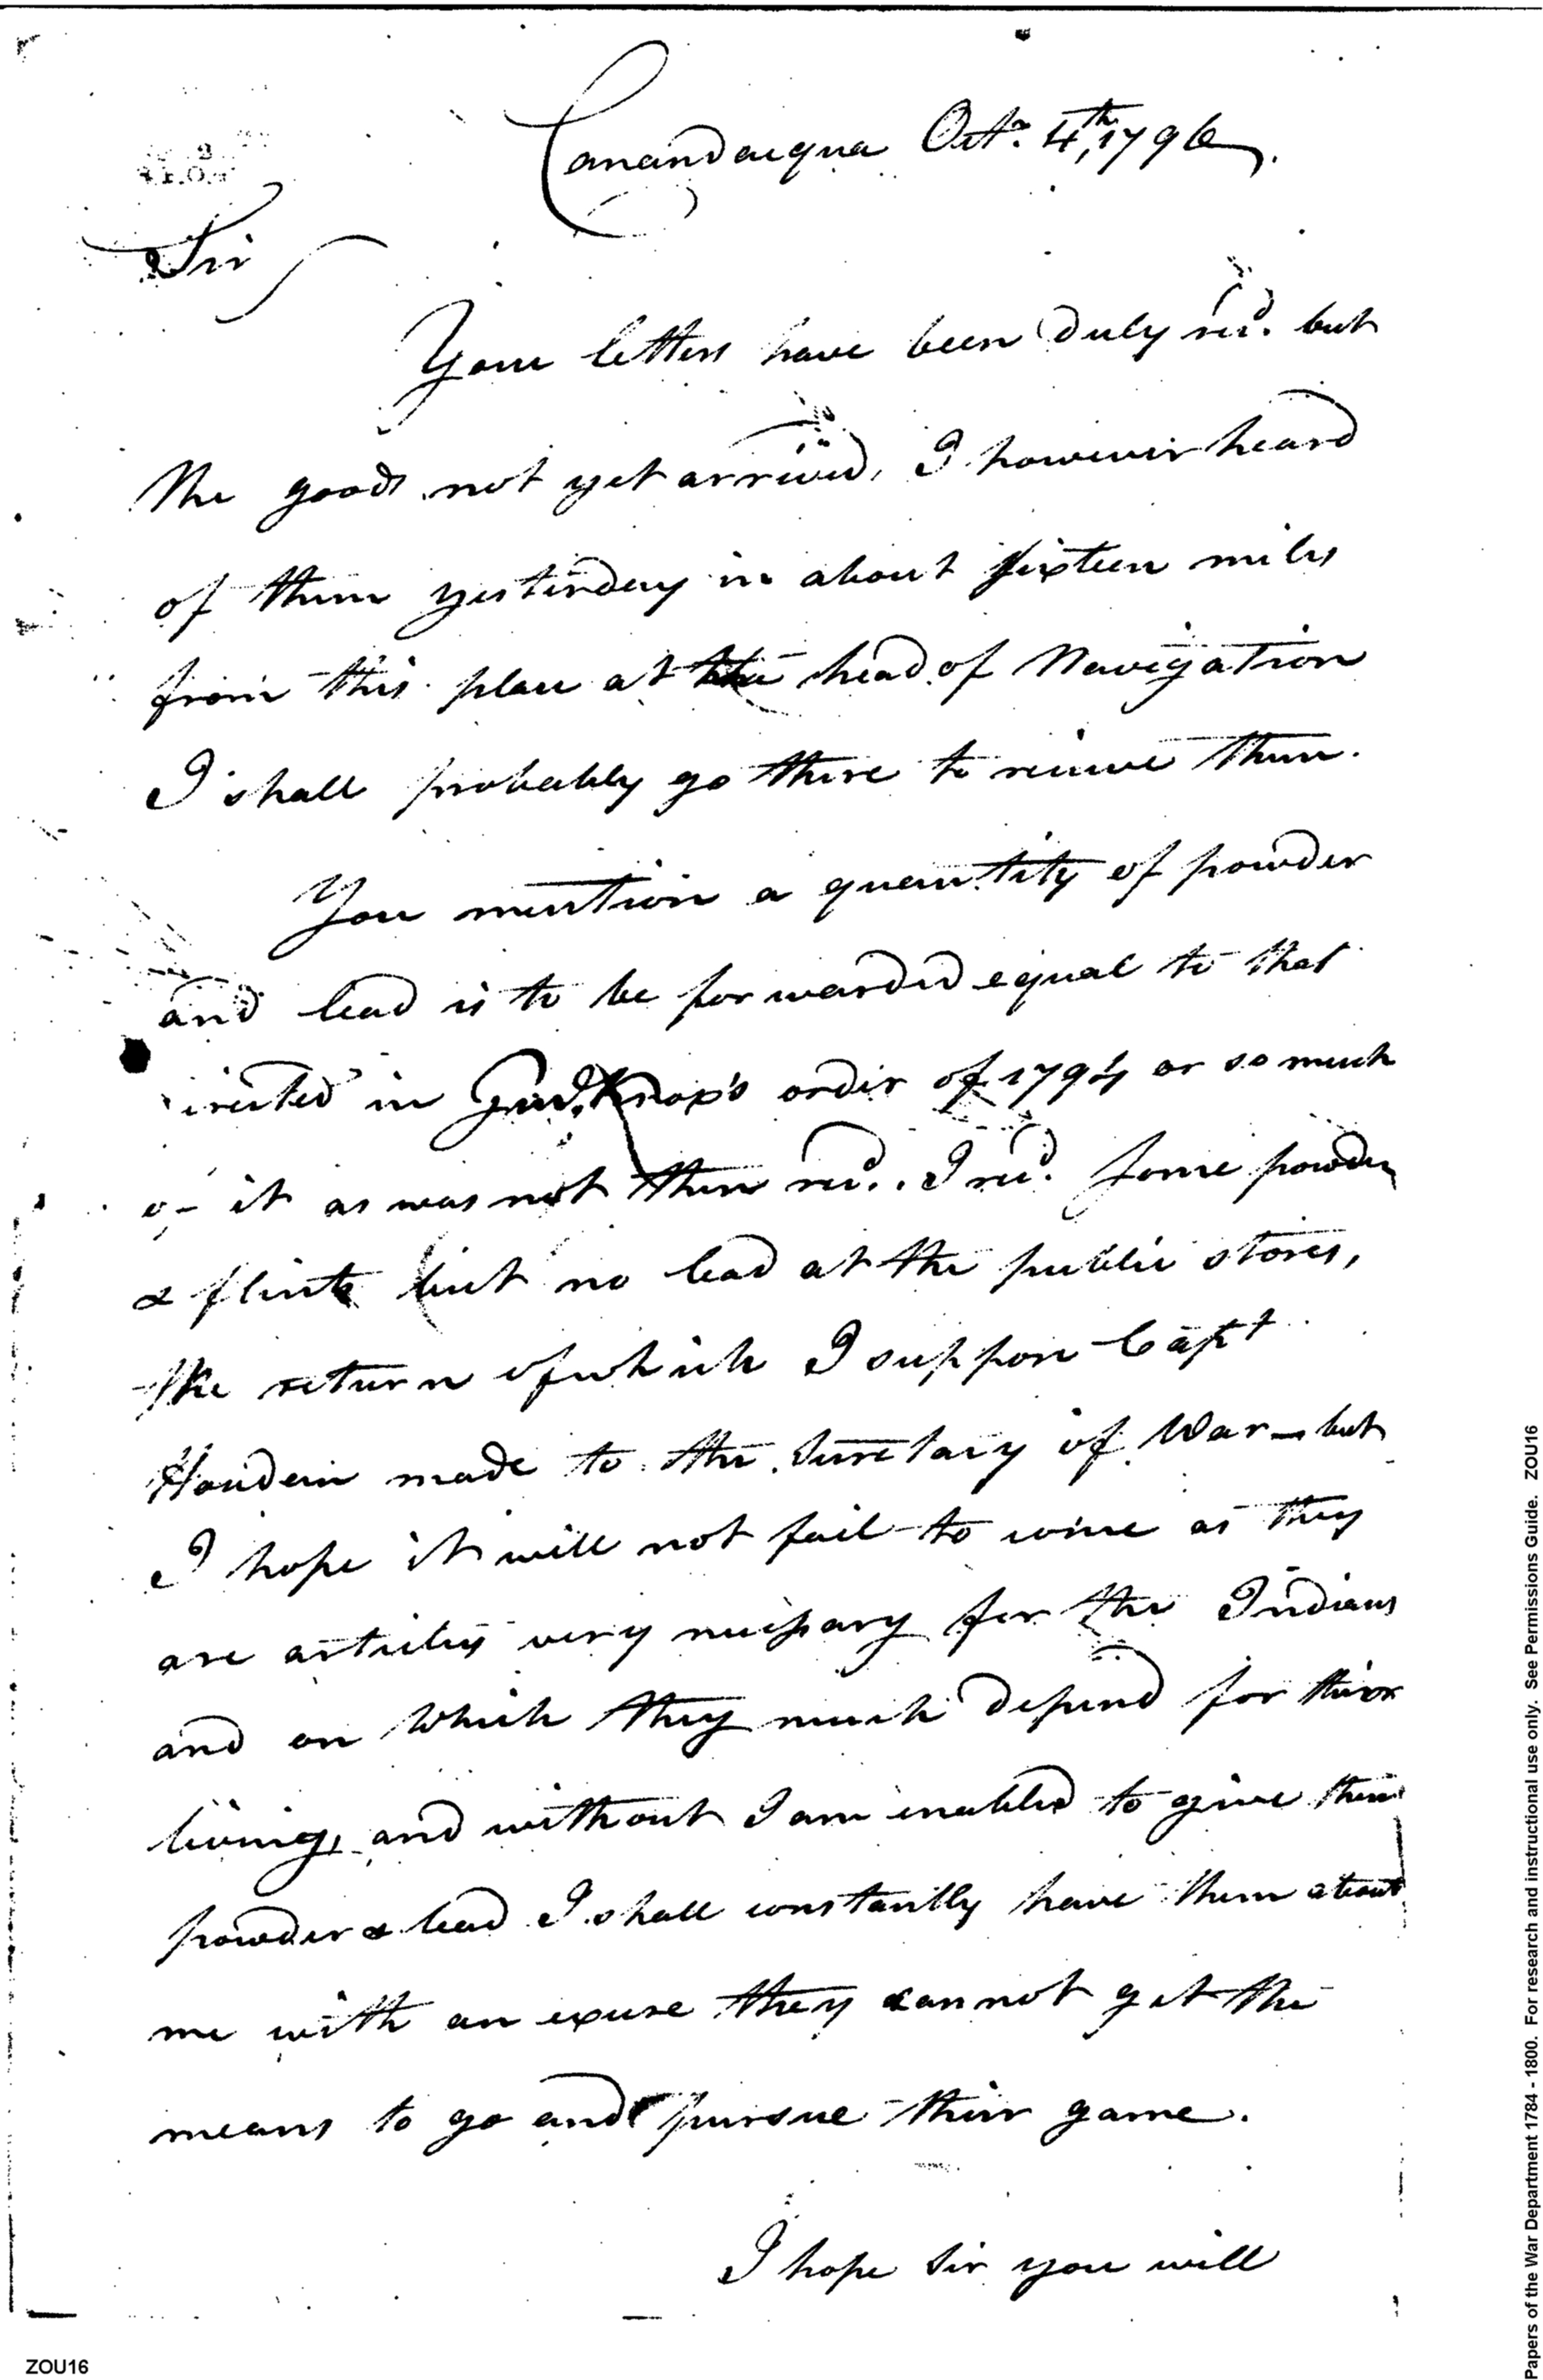 Canandaiqua Octr. 4th, 1796.
Sir
Your letters have been duly recd. but
the goods not yet arrived, I however heard
of them yesterday in about sixteen miles
from this place at the head of Navigation
I shall probably go there to receive them.
You mention a quantity of powder
and lead is to be forwarded equal to that
irected in Genl. Knox's order of 1794 or so much
of it as was not then recd.. I recd. some powder
& flints but no lead at the public stores,
the return of which I suppose Capt
Houdein made to the Secretary of War — but
I hope it will not fail to come as they
are articles very necessary for the Indians
and on which they much depend for their
living, and without I am enabled to give them
powder & lead I shall constantly have them about
me with an excuse they cannot get the
means to go and pursue their game.
I hope Sir you will
ZOU16
Papers of the War Department 1784 - 1800. For research and instructional use only. See Permissions Guide. ZOU16